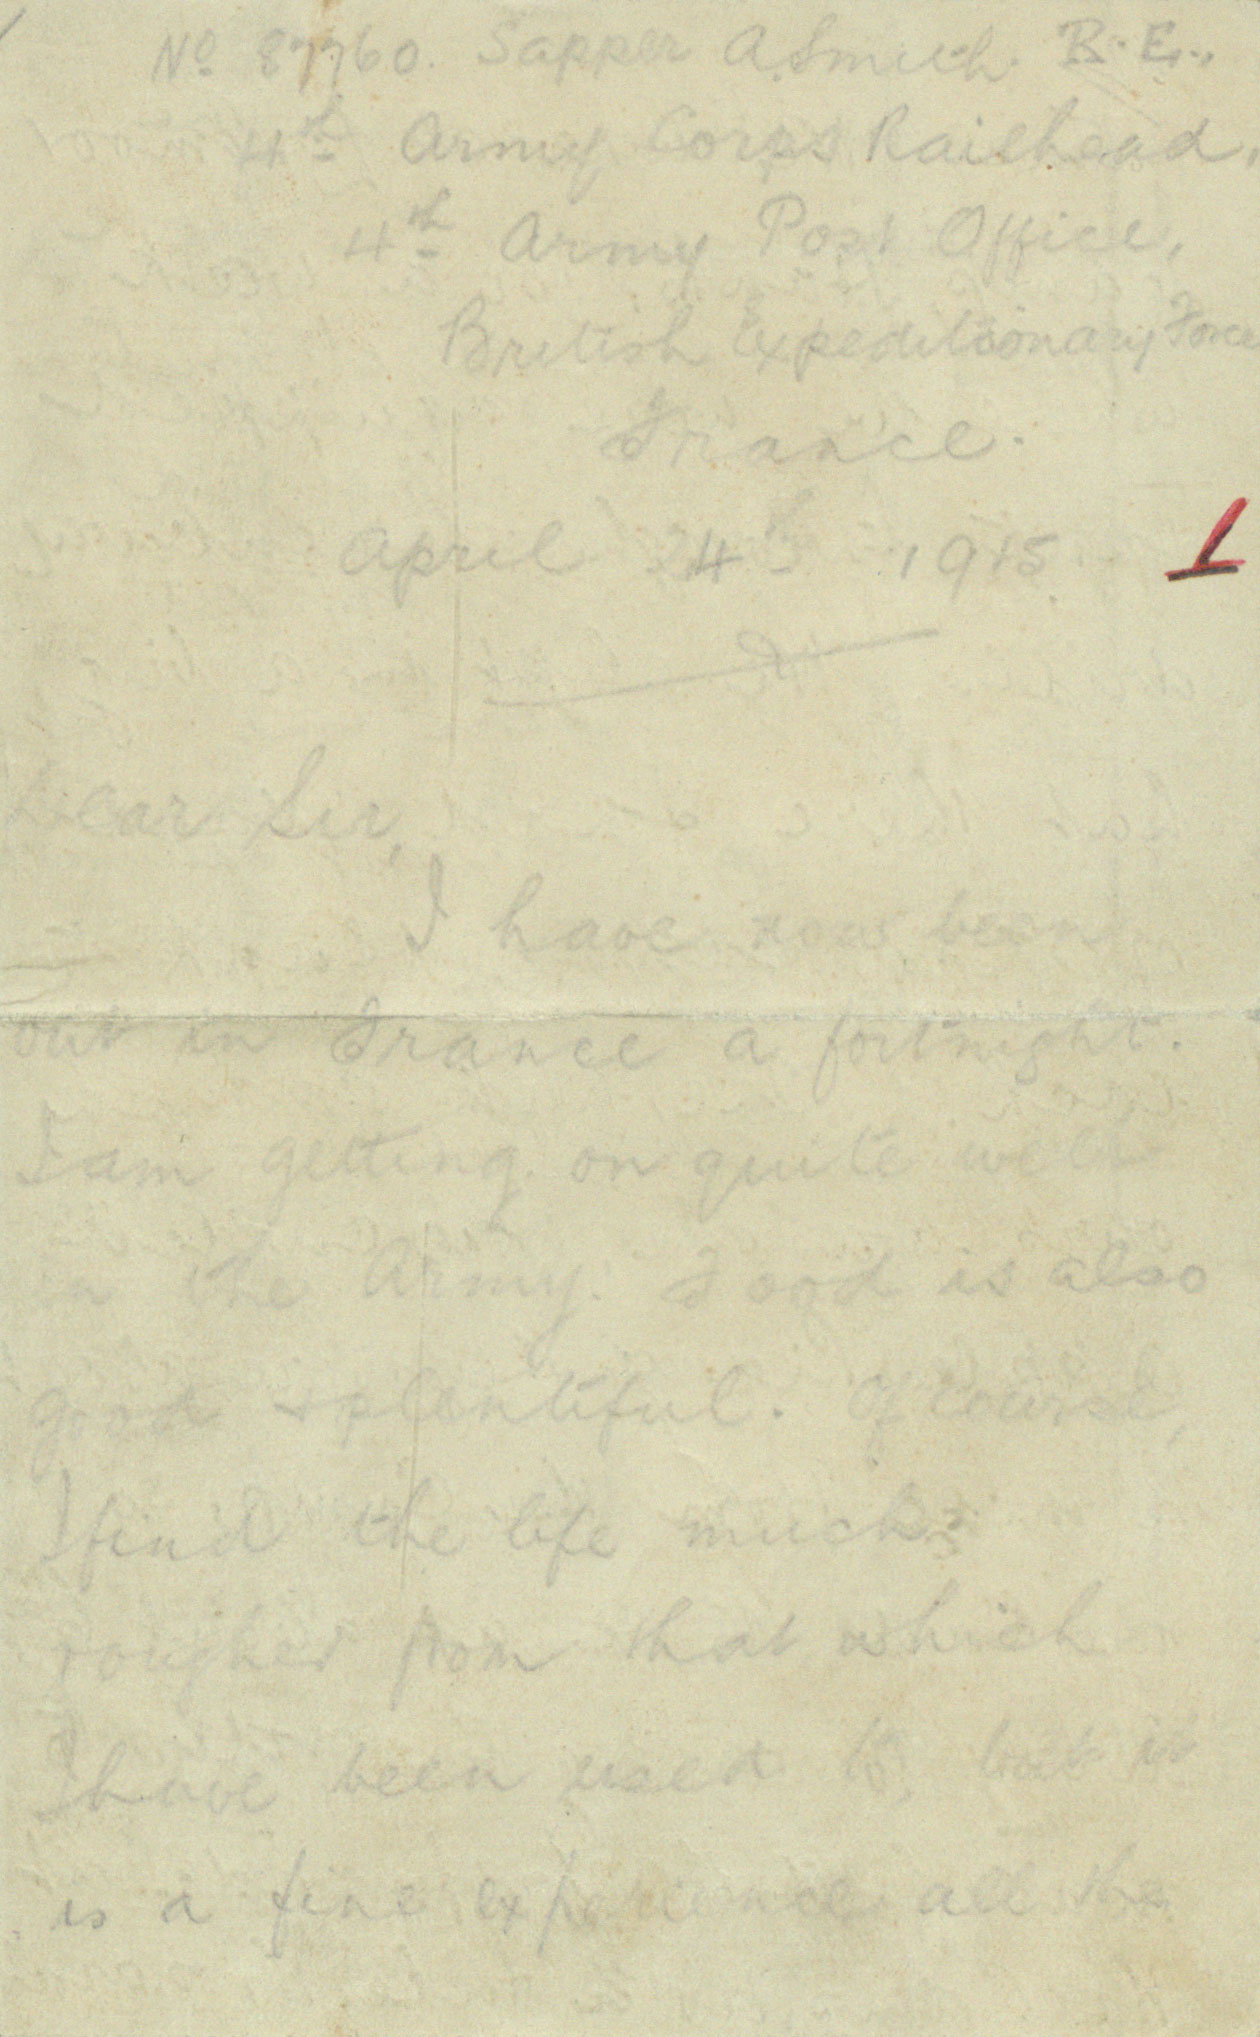 No 87760. Sapper A. Smith. R.E.,
4th Army Corps Railhead,
4th Army Post Office,
British Expeditionary Force
France.
April 24th 1915.
1
Dear Sir,
I have now been
out in France a fortnight.
I am getting on quite well
in the Army. Food is also
good & plentiful. Of course,
I find the life much
rougher from that which
I have been used to, but it
is a fine experience all the